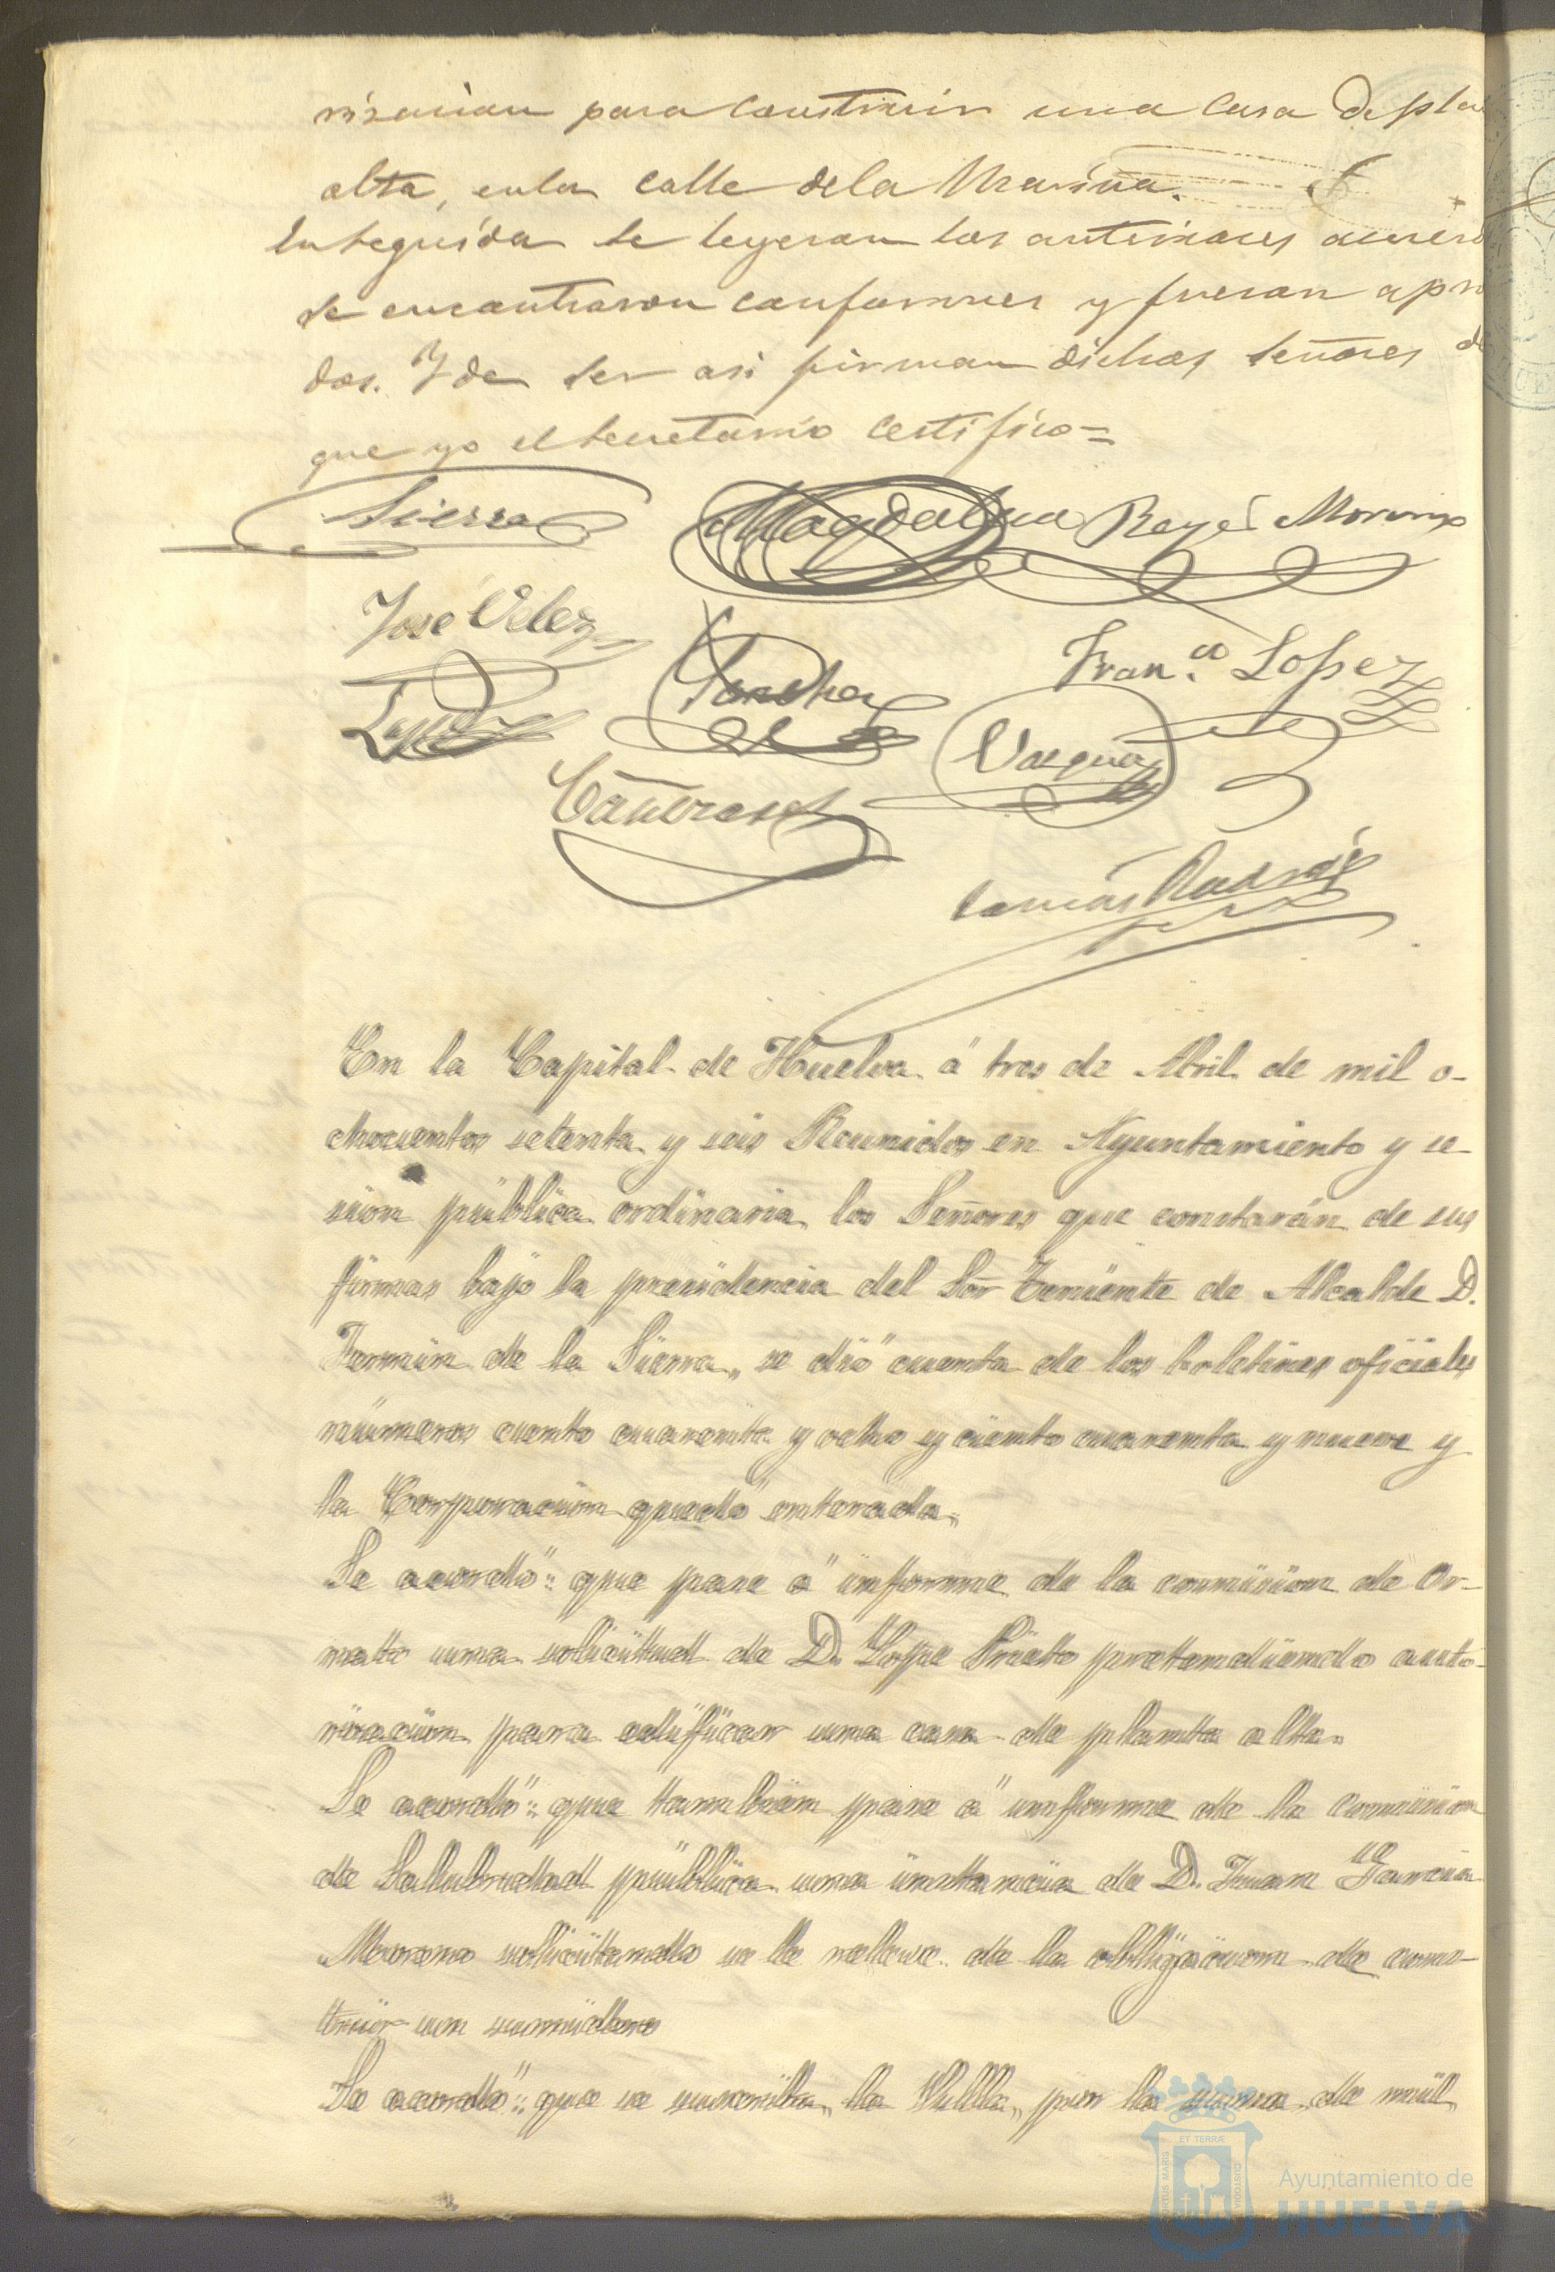 risacion para construir una casa de plan
alta, en la calle de la Marina.
Enseguida se leyeron los anteriores acuerd
se encontraron conformes y fueron apro
dos. Y de ser asi firman dichos señores de
que yo el Secretario certifico =
Sierra Magdalena Reyes Moreno
José Velez
Sanchez Fran.co Lopez
Vazquez
Cañizares
En la Capital de Huelva á tres de Abril de mil o-
chocientos setenta y seis Reunidos en Ayuntamiento y se-
sion pública ordinaria los Señores que constarán de sus
firmas bajo la presidencia del Sor Teniente de Alcalde D.
Fermin de la Sierra, se dió cuenta de los boletines oficiales
números ciento cuarenta y ocho y ciento cuarenta y nueve y
la Corporacion quedó enterada.
Se acordó: que pase á informe de la comision de Or-
nato una solicitud de D. Lope Prieto pretendiendo auto-
risacion para edificar una casa de planta alta.
Se acordó: que tambien pase á informe de la comision
de Salubridad pública una instancia de D. Juan Garcia
Moreno solicitando se le releve de la obligacion de cons-
truir un sumidero
Se acordó: que se suscriba la Villa, por la suma de mil
PORTUS MARIS ET TERRÆ CUSTODIA
Ayuntamiento de
HUELVA